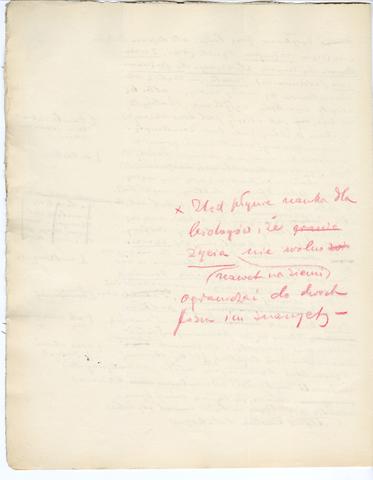 × Stąd płynie nauka dla
biologów iż że granic
życia nie wolno
(nawet na ziemi)
ograniczać do dwóch
form im znanych –